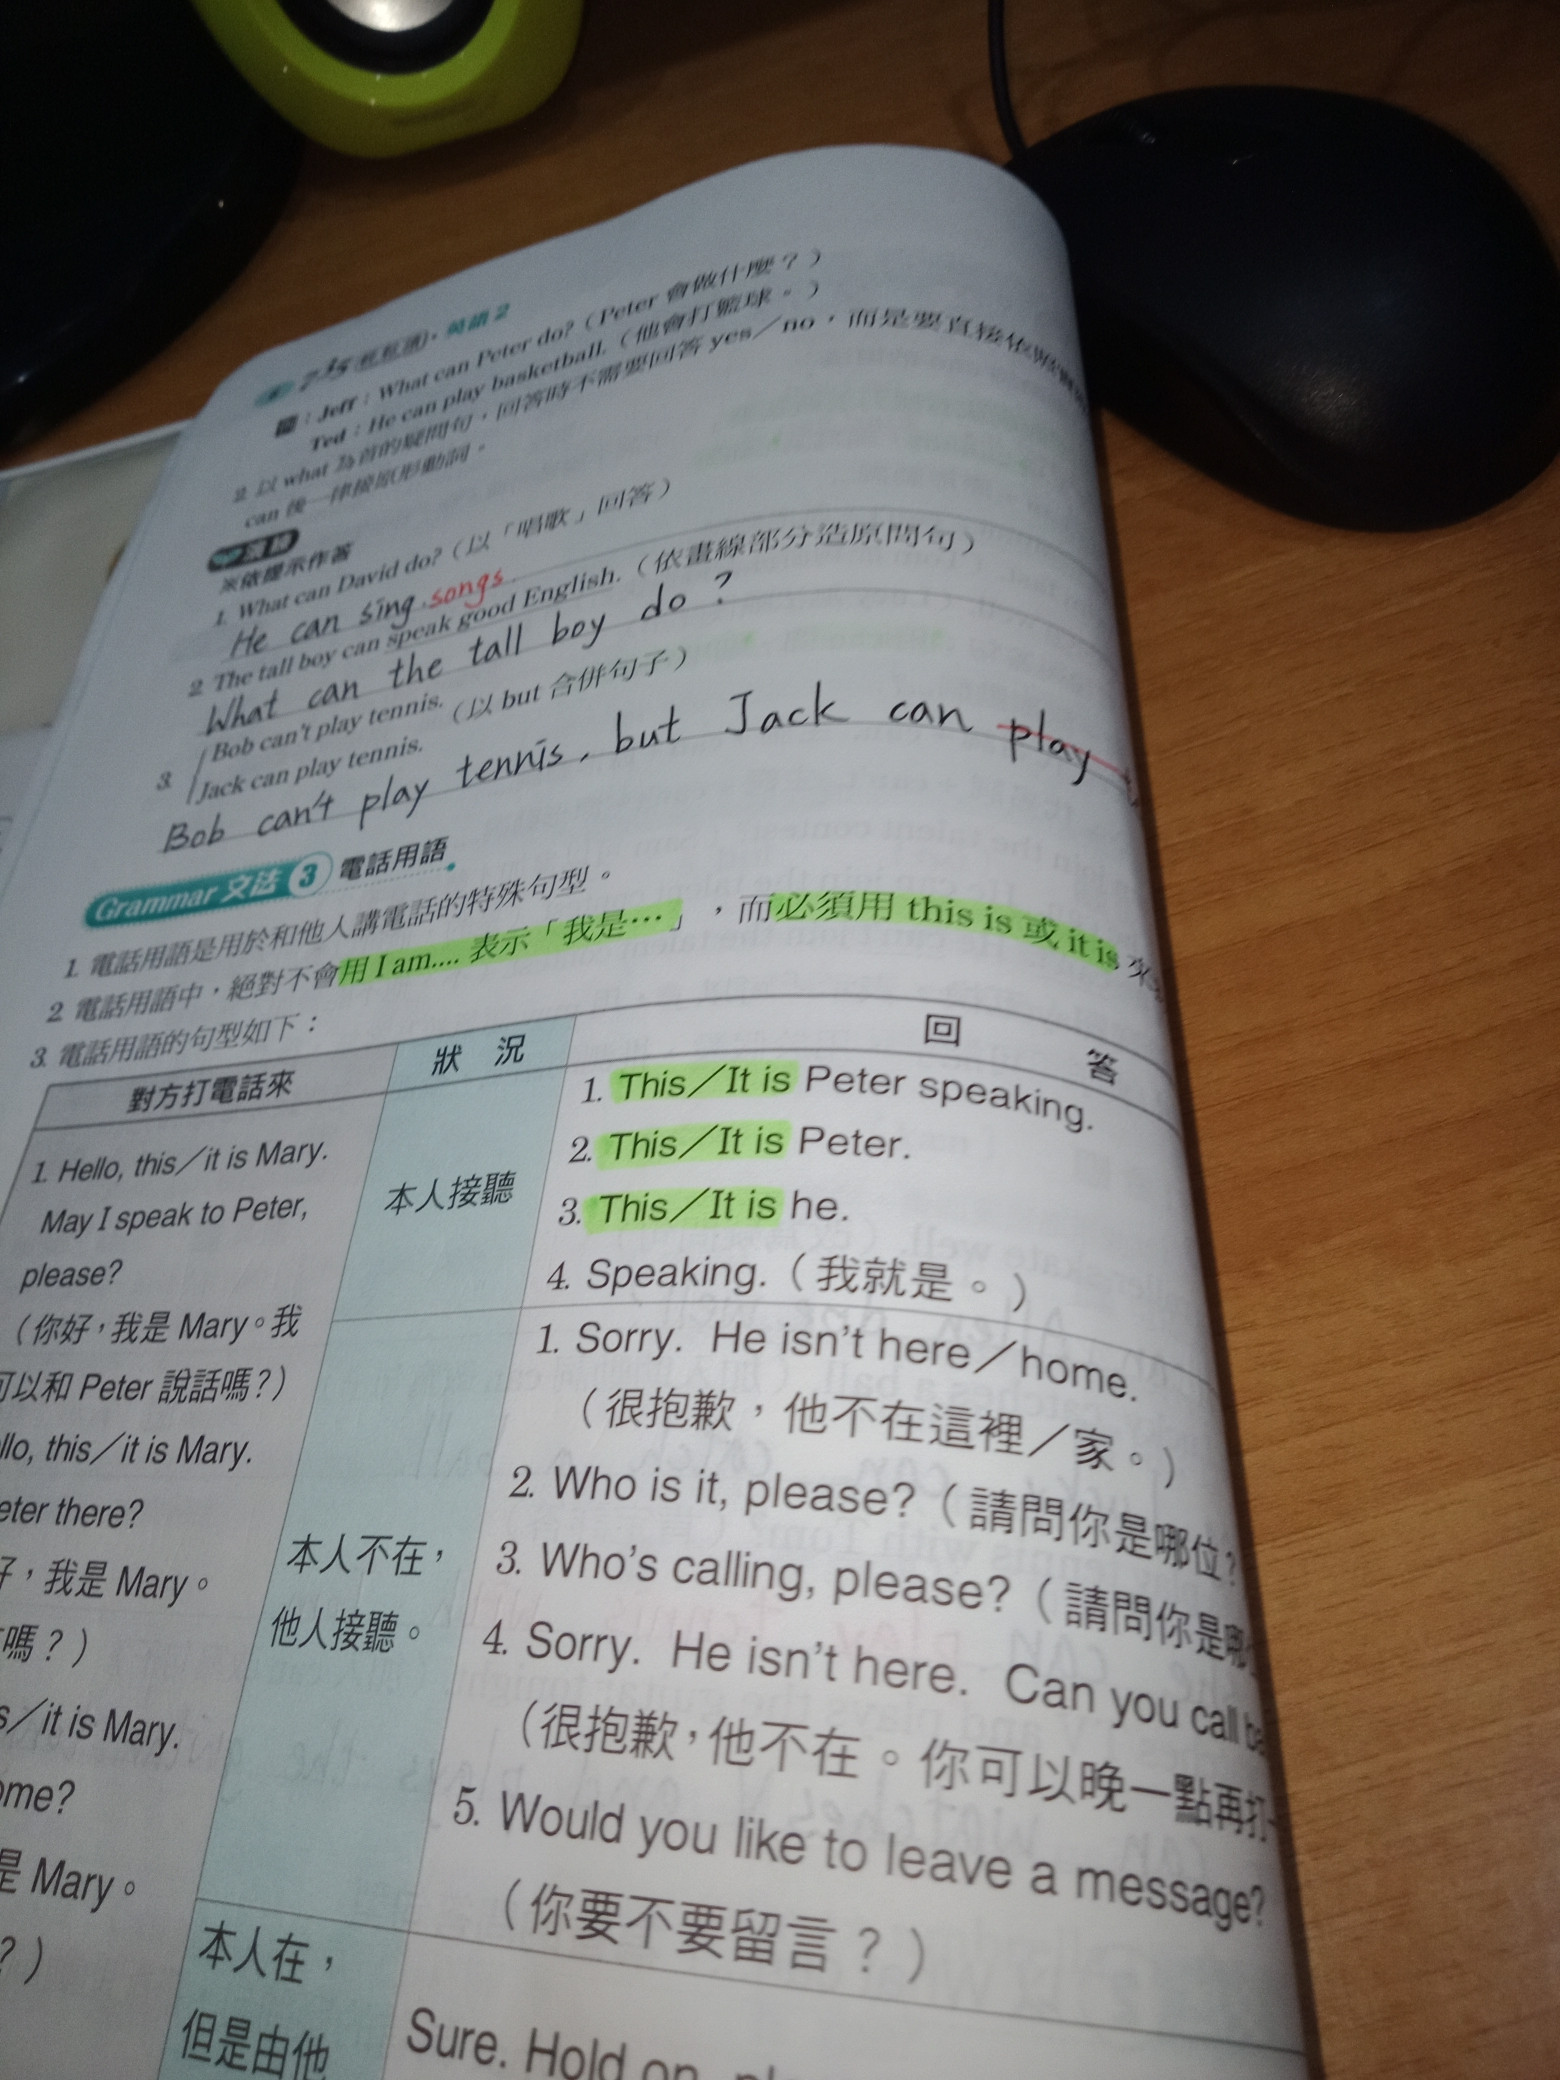 英語 2
Jeff：What can Peter do?（Peter 會做什麼？）
Ted：He can play basketball.（他會打籃球。）
2. 以 what 為首的疑問句，回答時不需要回答 yes／no，而是要直接依照
can 後一律接原形動詞。
演練
※依提示作答
1. What can David do?（以「唱歌」回答）
He can sing songs.
2. The tall boy can speak good English.（依畫線部分造原問句）
What can the tall boy do?
3. Bob can't play tennis.（以 but 合併句子）
Jack can play tennis.
Bob can't play tennis, but Jack can play
Grammar 文法 3 電話用語
1. 電話用語是用於和他人講電話的特殊句型。
2. 電話用語中，絕對不會用 I am.... 表示「我是…」，而必須用 this is 或 it is 來
3. 電話用語的句型如下：
對方打電話來 狀況 回答
1. Hello, this／it is Mary.
May I speak to Peter,
please?
（你好，我是 Mary。我
可以和 Peter 說話嗎？）
llo, this／it is Mary.
eter there?
好，我是 Mary。
嗎？）
s／it is Mary.
ome?
是 Mary。
？）
本人接聽
1. This／It is Peter speaking.
2. This／It is Peter.
3. This／It is he.
4. Speaking.（我就是。）
本人不在，
他人接聽。
1. Sorry. He isn't here／home.
（很抱歉，他不在這裡／家。）
2. Who is it, please?（請問你是哪位？
3. Who's calling, please?（請問你是哪位
4. Sorry. He isn't here. Can you call
（很抱歉，他不在。你可以晚一點再打
5. Would you like to leave a message?
（你要不要留言？）
本人在，
但是由他
Sure. Hold on,